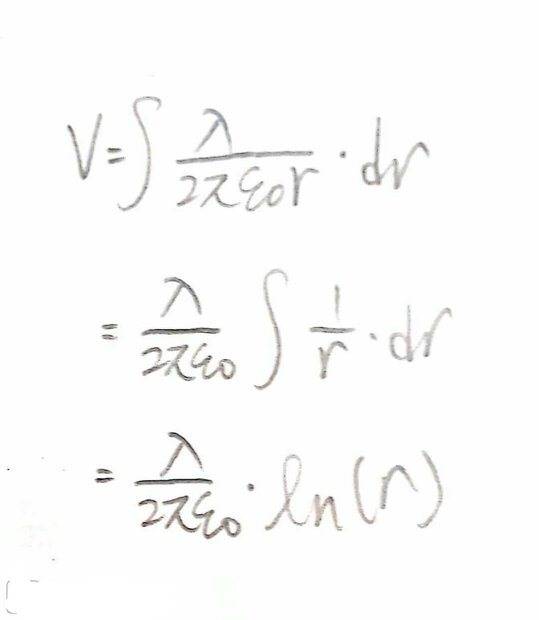 V=∫ λ/(2πε₀r) · dr
= λ/(2πε₀) ∫ 1/r · dr
= λ/(2πε₀) · ln(r)